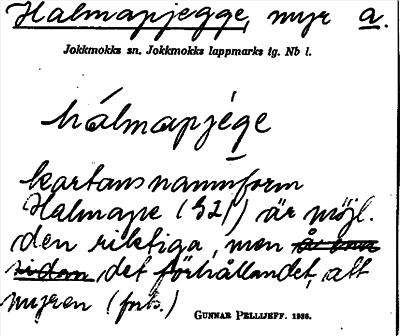 Halmapjegge, myr a.
Jokkmokks sn. Jokkmokks lappmarks tg. Nb l.
hálmapjége
kartans namnform
Halmape (32) är möjl.
den riktiga, men
det förhållandet, att
myren (forts.)
GUNNAR PELLIJEFF. 1936.